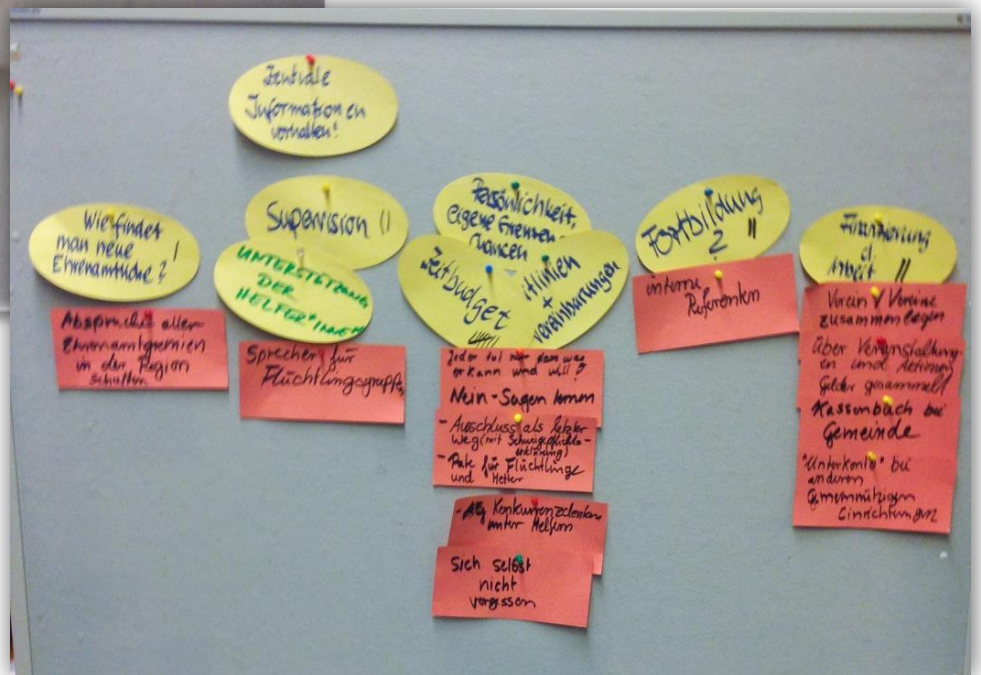 Zentrale
Informationen
vorhalten!
Wie findet
man neue
Ehrenamtliche? !
Absprache aller
Ehrenamtgremien
in der Region
schaffen
Supervision !!
UNTERSTÜTZUNG
DER
HELFER*INNEN
Sprecher für
Flüchtlingsgruppe
Persönlichkeit,
eigene Grenzen
Chancen
Zeitbudget
+
Vereinbarungen
Jeder tut nur dann was
er kann und will!
Nein-Sagen lernen
- Ausschluss als letzter
Weg (mit Schweigepflichts-
erklärung)
- Pate für Flüchtlinge
und Helfer
- Konkurrenzdenken
unter Helfern
Sich selbst
nicht
vergessen
Fortbildung
? !!
interne
Referenten
Finanzierung
d.
Arbeit !!
Verein / Vereine
zusammenlegen
Über Veranstaltung-
en und Aktionen
Gelder gesammelt
Kassenbuch bei
Gemeinde
"Unterkonto" bei
anderen
Gemeinnützigen
Einrichtungen